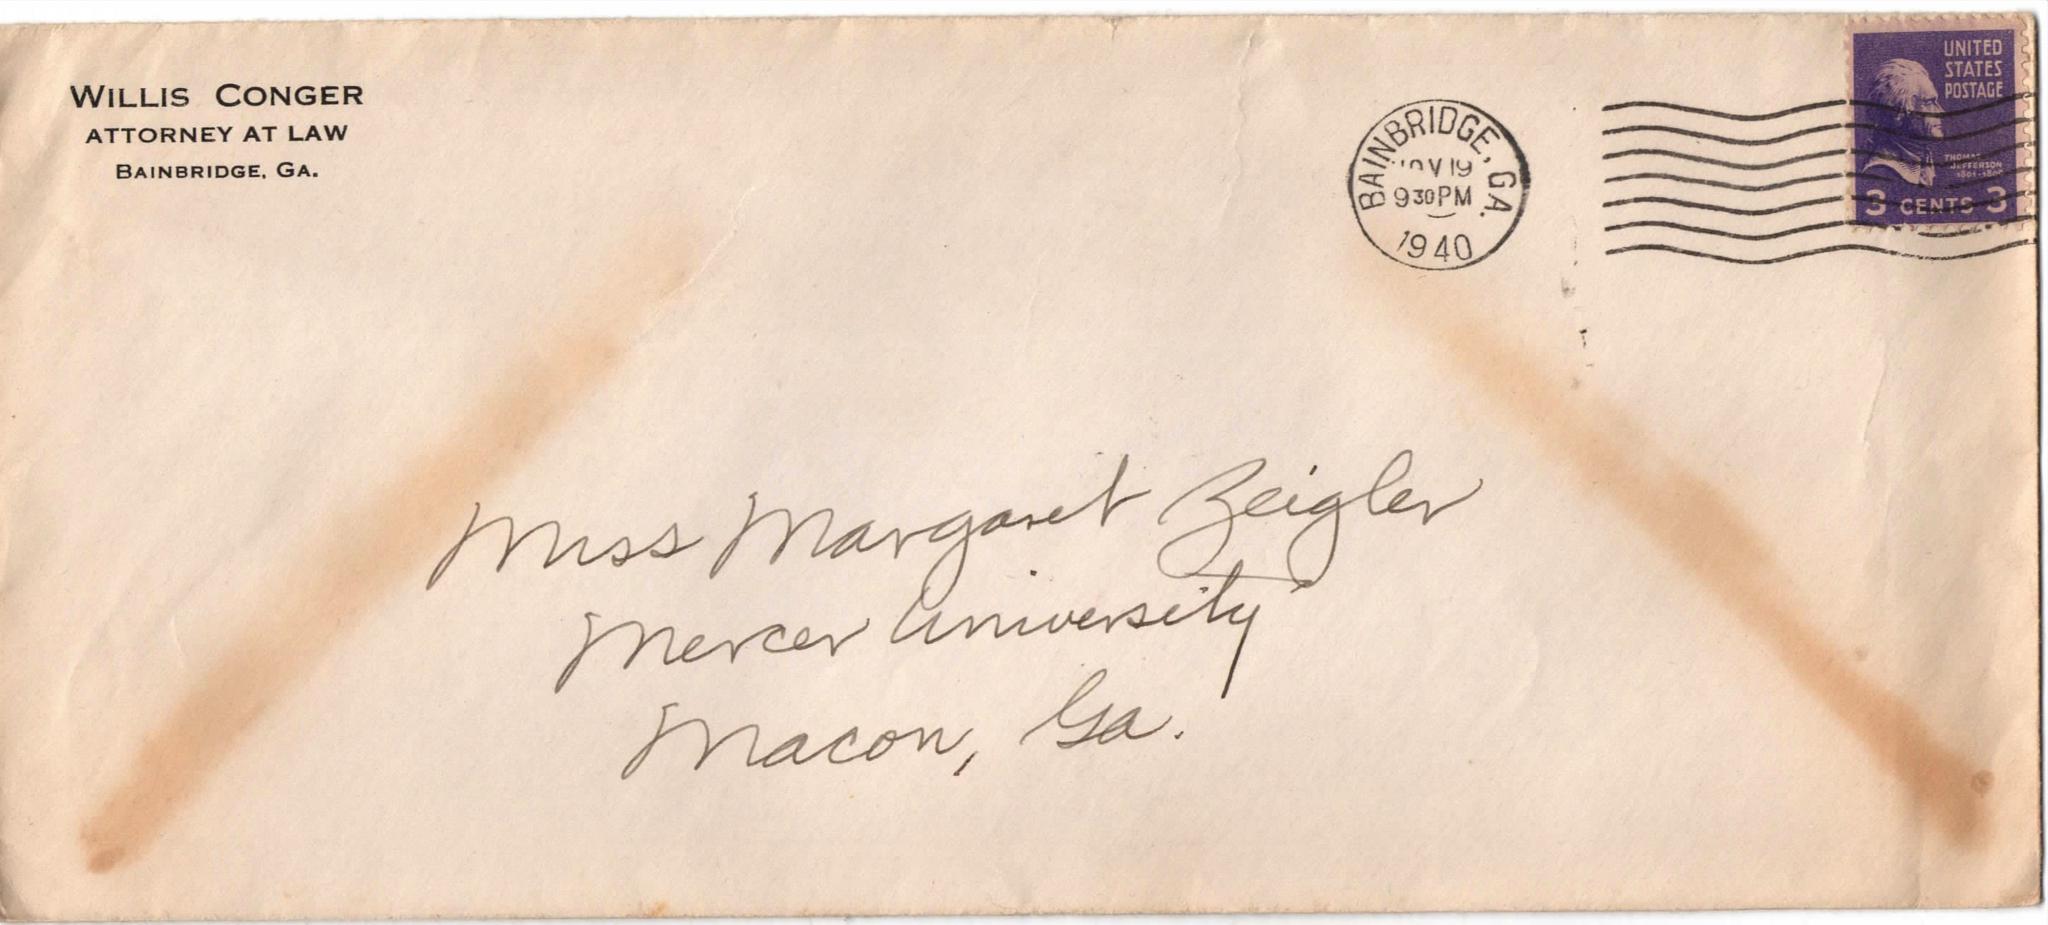 WILLIS CONGER
ATTORNEY AT LAW
BAINBRIDGE, GA.
BAINBRIDGE, GA.
NOV 19
9 30 PM
1940
UNITED
STATES
POSTAGE
THOMAS
JEFFERSON
1801-1809
3 CENTS 3
Miss Margaret Zeigler
Mercer University
Macon, Ga.